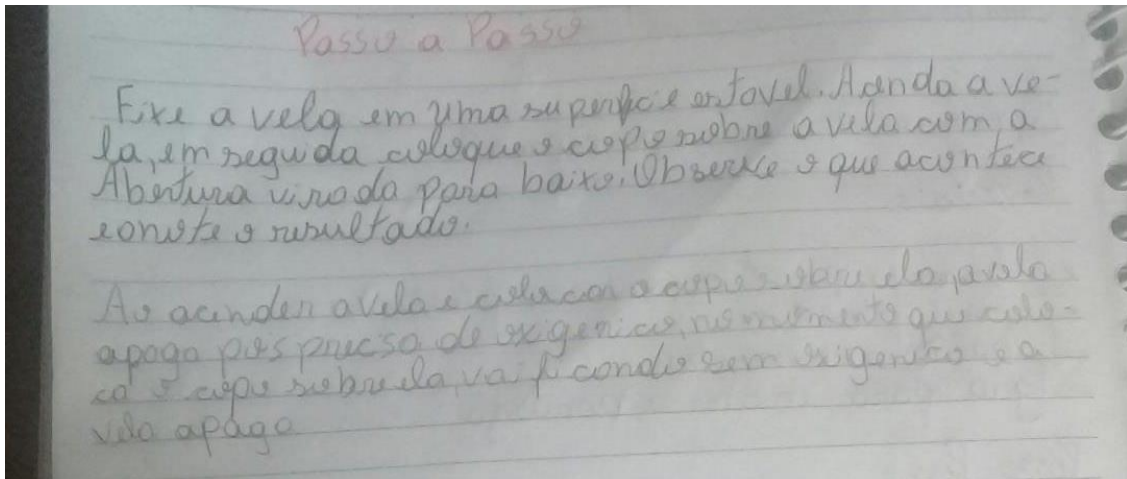 Passo a Passo
Fixe a vela em uma superfice estavel. Acenda a ve-
la, em seguda coloque o copo sobre a vela com a
Abertura virada para baixo. Observe o que acontece
e anote o resultado.
Ao acender a vela e colocar o copo sobre ela, a vela
apaga pos precsa de oxigenico, no momento que colo-
ca o copo sobre ela, vai ficando sem oxigenico e a
vela apaga